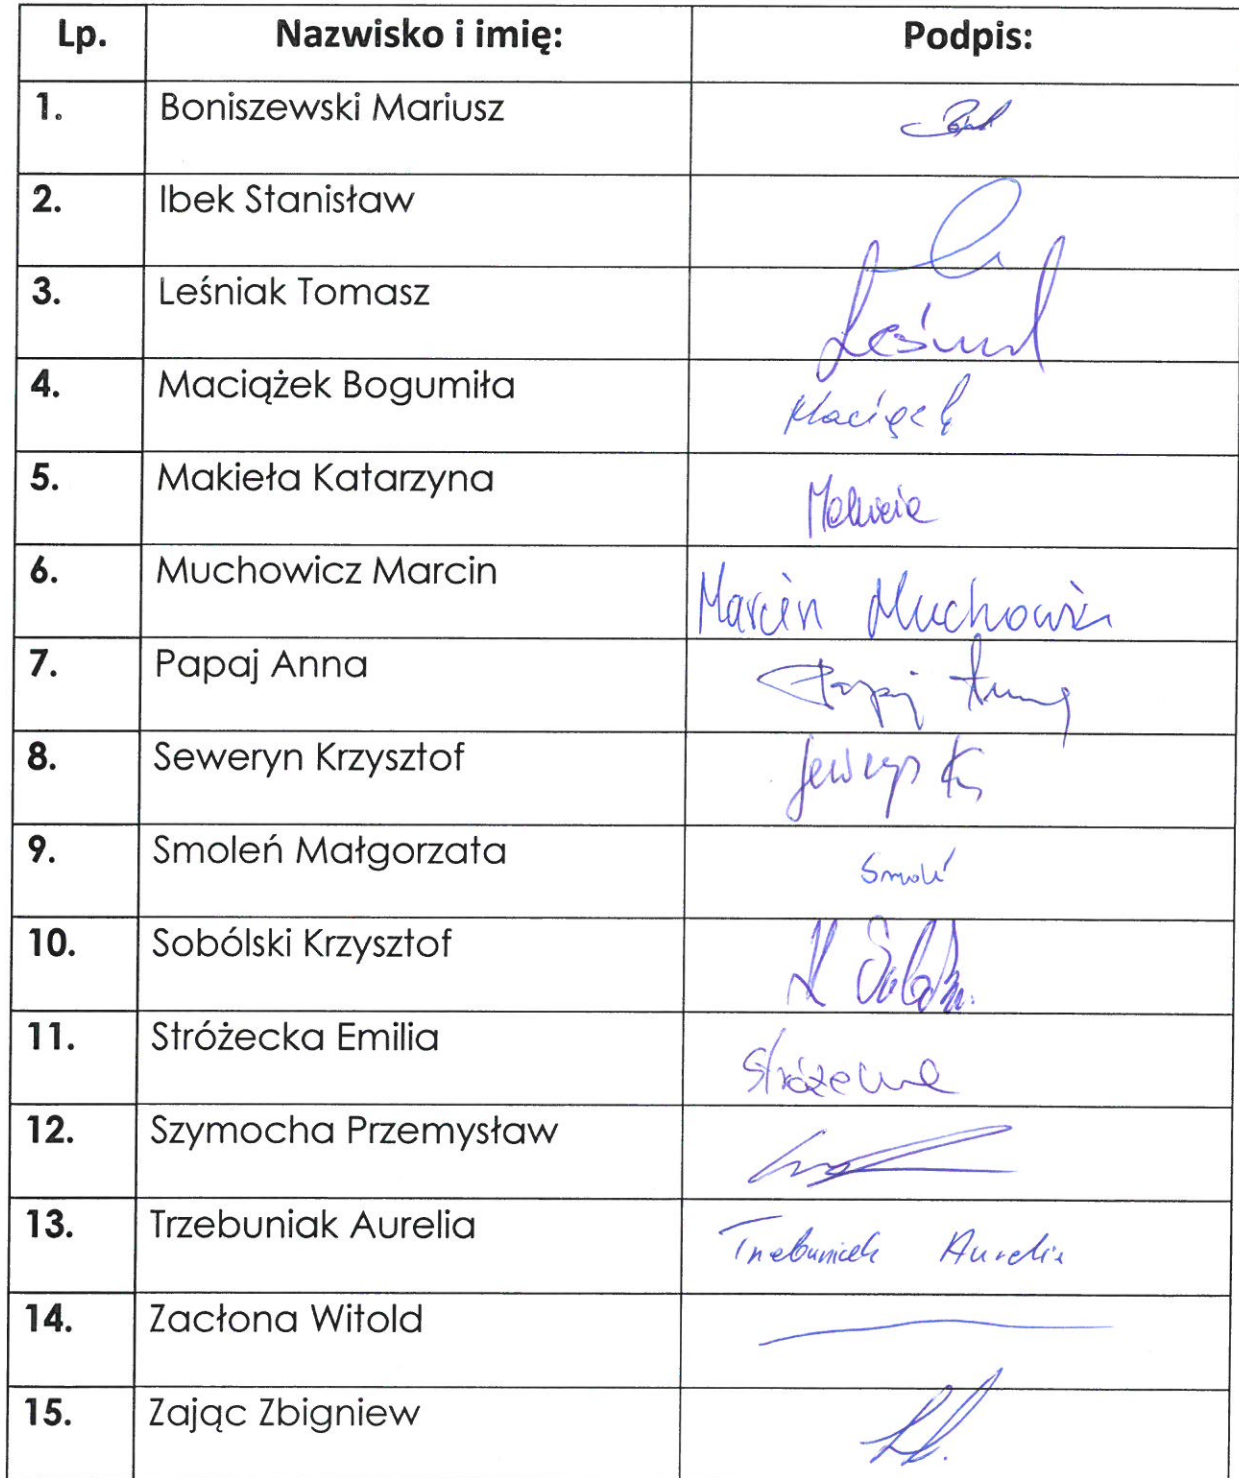 Lp. Nazwisko i imię: Podpis:
1. Boniszewski Mariusz
2. Ibek Stanisław
3. Leśniak Tomasz
4. Maciążek Bogumiła
5. Makieła Katarzyna
6. Muchowicz Marcin Marcin Muchowicz
7. Papaj Anna Papaj Anna
8. Seweryn Krzysztof
9. Smoleń Małgorzata Smoleń
10. Sobólski Krzysztof
11. Stróżecka Emilia Stróżecka
12. Szymocha Przemysław
13. Trzebuniak Aurelia Trzebuniak Aurelia
14. Zacłona Witold
15. Zając Zbigniew